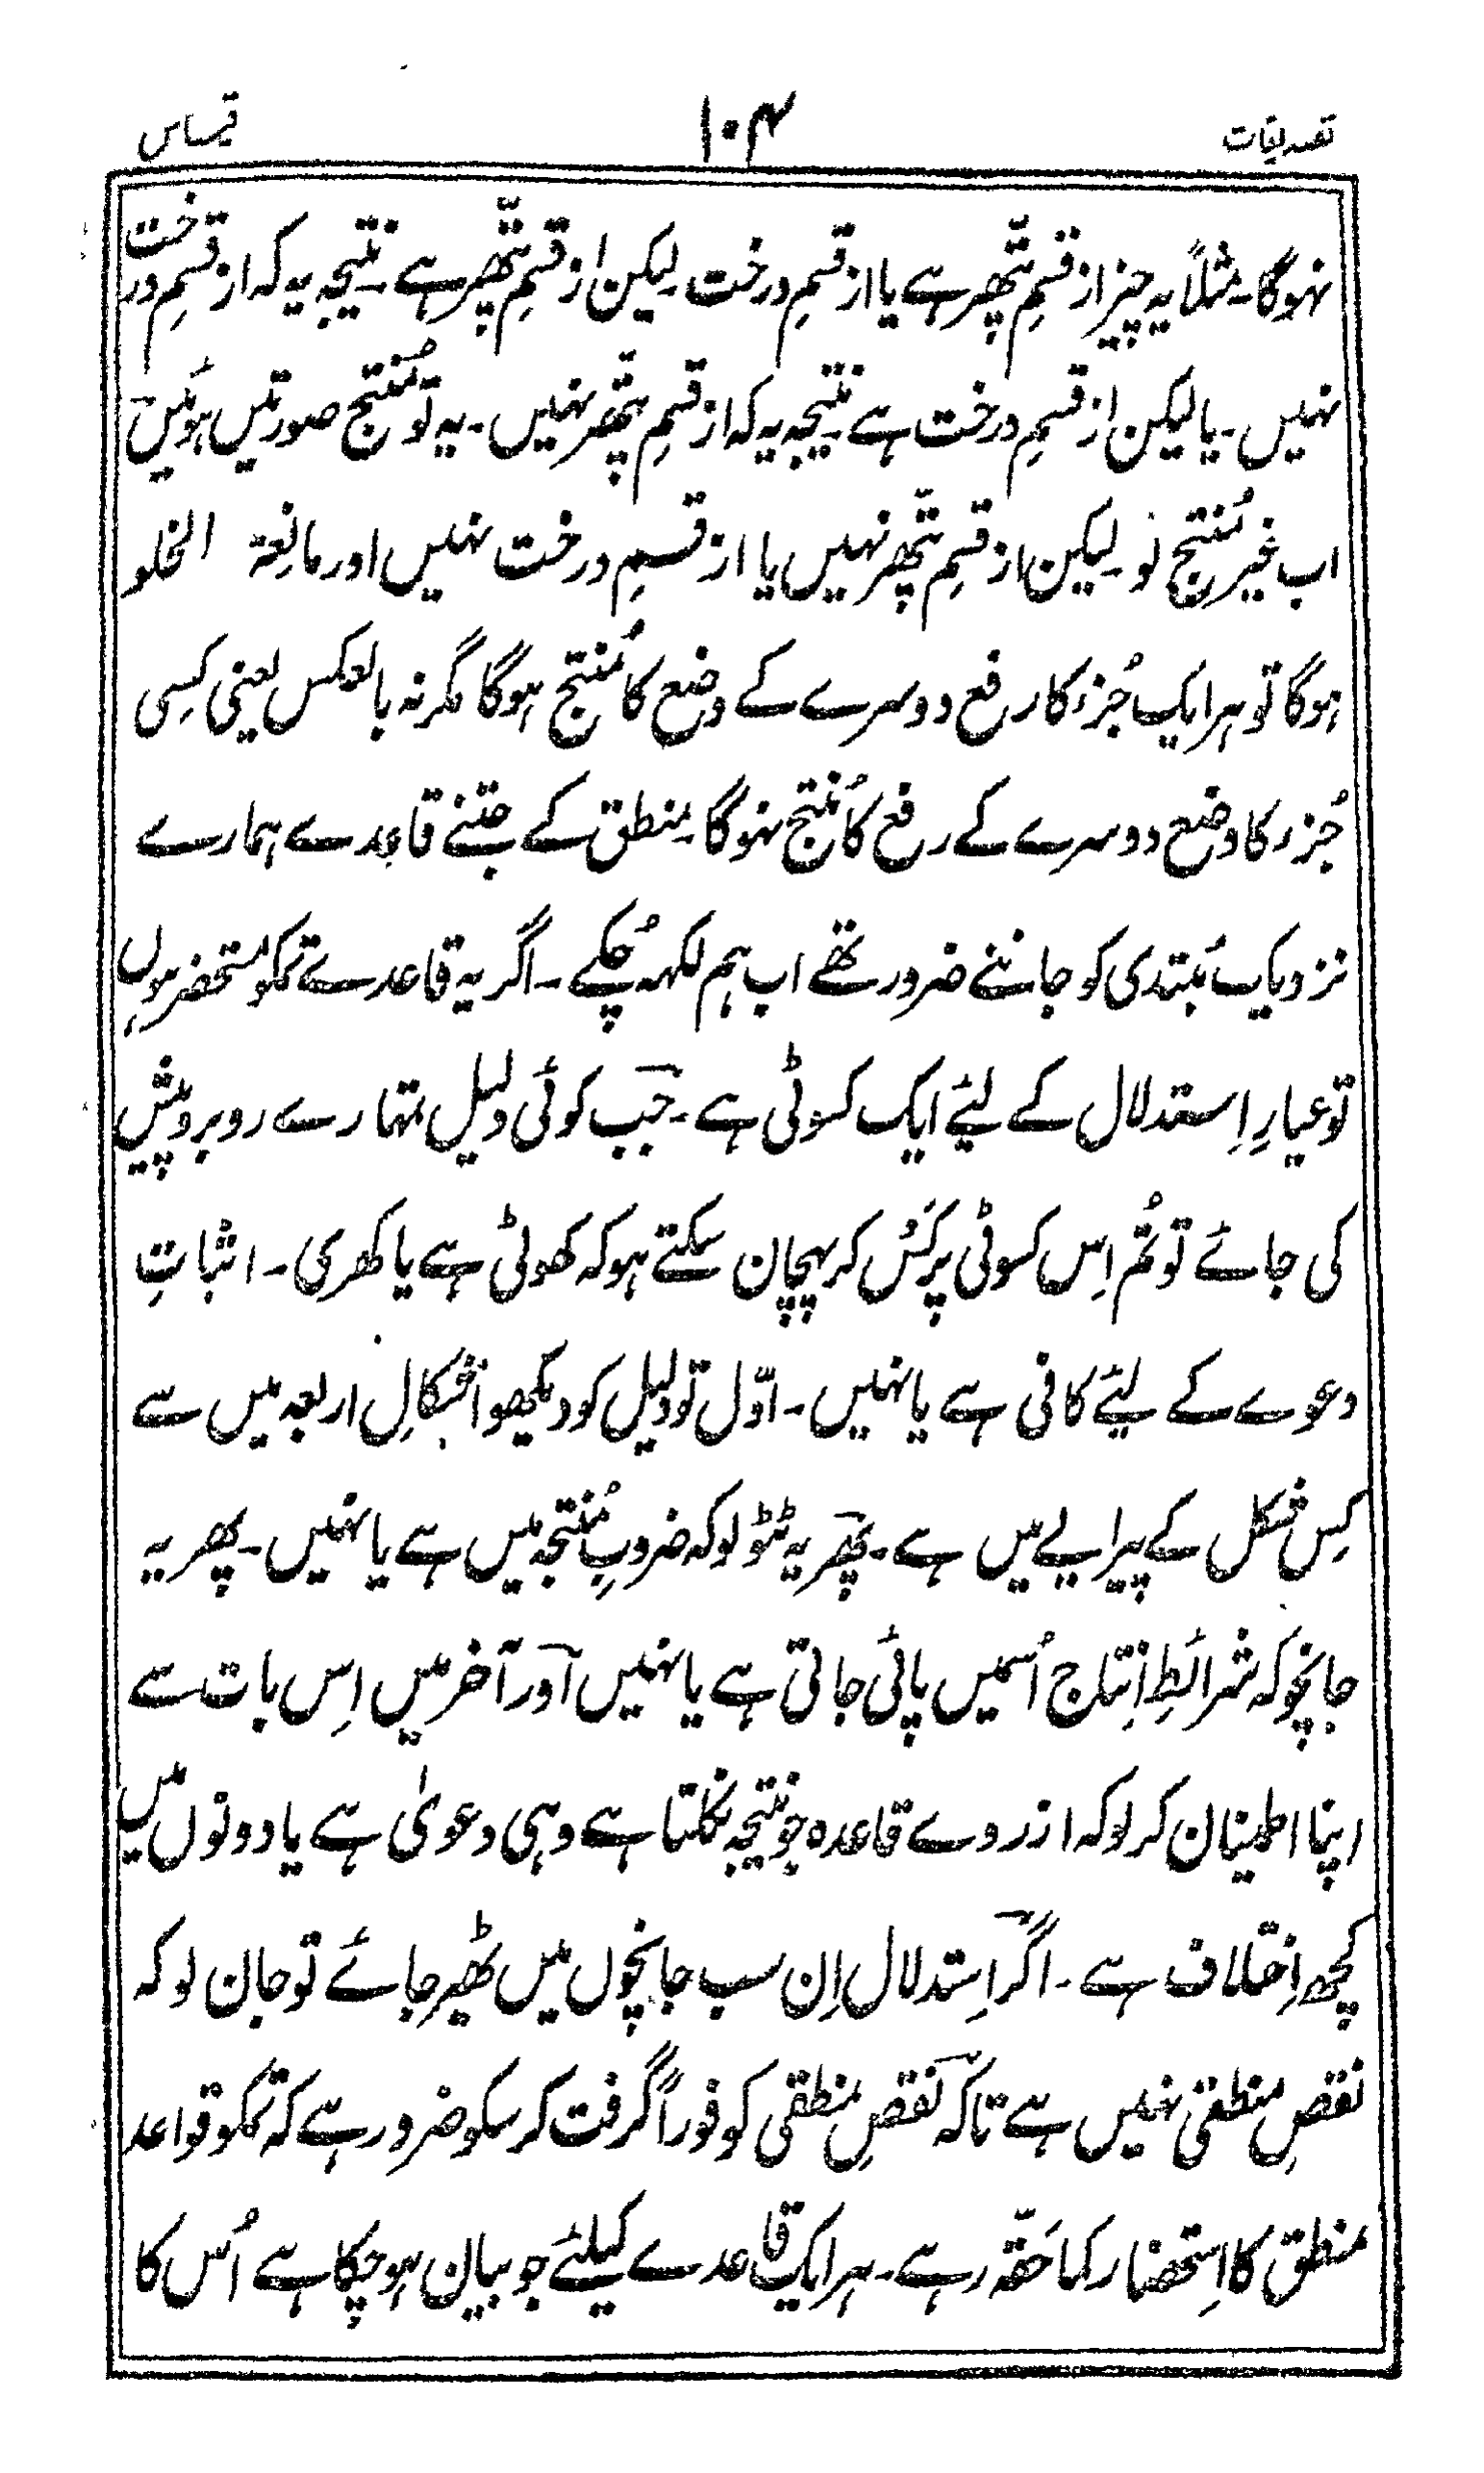 تصدیقات ۱۰۴ قیاس
نہوگا۔ مثلاً یہ چیز از قسمِ پتّھر ہے یا از قسمِ درخت۔ لیکن از قسمِ پتّھر ہے۔ نتیجہ یہ کہ از قسمِ درخت
نہیں۔ یا لیکن از قسمِ درخت ہے۔ نتیجہ یہ کہ از قسمِ پتّھر نہیں۔ یہ تو مُنتج صورتیں ہوئیں
اب غیر مُنتج لو۔ لیکن از قسمِ پتّھر نہیں یا از قسمِ درخت نہیں اور مانعۃ الخلو
ہوگا تو ہر ایک جُزء کا رفع دوسرے کے وضع کا مُنتج ہوگا مگر نہ بالعکس یعنی کِسی
جُزء کا وضع دوسرے کے رفع کا مُنتج نہوگا۔ منطق کے جتنے قاعدے ہمارے
نزدیک مُبتدی کو جاننے ضرور تھے اب ہم لکہہ چُکے۔ اگر یہ قاعدے تمکو مُستحضر ہوں
تو عیارِ اِستدلال کے لیٔے ایک کسوٹی ہے۔ جب کوئی دلیل تمہارے روبرو پیش
کی جائے تو تُم اِس کسوٹی پر کَسْ کر پہچان سکتے ہو کہ کھوٹی ہے یا کھری۔ اثباتِ
دعوے کے لیٔے کافی ہے یا نہیں۔ اوّل تو دلیل کو دیکھو اَشکالِ اربعہ میں سے
کِس شکل کے پیرایے میں ہے۔ پھر یہ ٹٹولو کہ ضروبِ مُنتجہ میں ہے یا نہیں۔ پھر یہ
جانچو کہ شرائطِ اِنتاج اُسمیں پائی جاتی ہے یا نہیں اور آخر میں اِس بات سے
اپنا اطمینان کر لو کہ از روے قاعدہ جو نتیجہ نکلتا ہے وہی دعویٰ ہے یا دونوں میں
کچھ اِختلاف ہے۔ اگر اِستدلال اِن سب جانچوں میں ٹھیر جائے تو جان لو کہ
نقصِ منطقی نہیں ہے تاکہ نقصِ منطقی کو فوراً گرفت کر سکو ضرور ہے کہ تمکو قواعد
منطق کا اِستحضار کما حَقّہ رہے۔ ہر ایک قاعدے کیلئے جو بیان ہو چکا ہے اُس کا